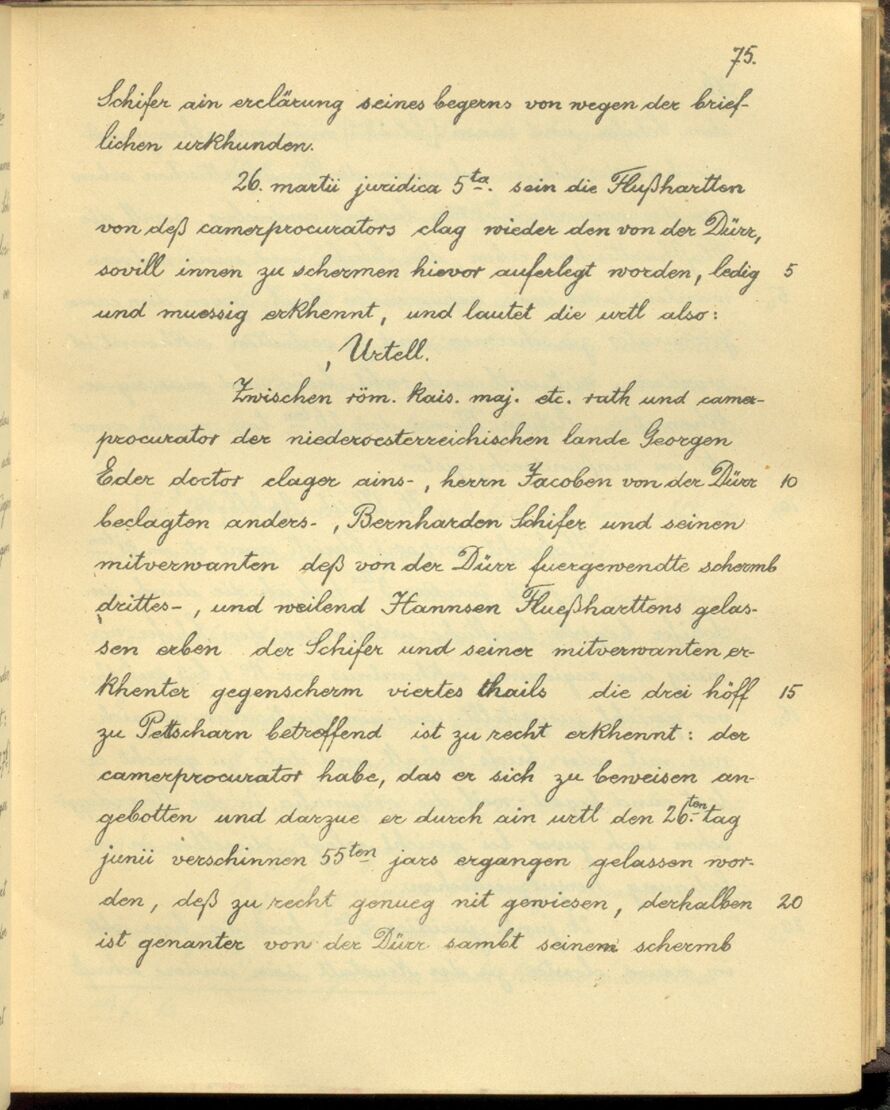 75.
Schifer ain erclärung seines begerns von wegen der brief-
lichen urkhunden.
26. martii juridica 5ta. sein die Flußhartten
von deß camerprocurators clag wieder den von der Dürr,
sovill innen zu schermen hievor auferlegt worden, ledig 5
und muessig erkhennt, und lautet die urtl also:
Urtell.
Zwischen röm. kais. maj. etc. rath und camer-
procurator der niederoesterreichischen lande Georgen
Eder doctor clager ains-, herrn Jacoben von der Dürr 10
beclagten anders-, Bernharden Schifer und seinen
mitverwanten deß von der Dürr fuergewendte schermb
drittes-, und weilend Hannsen Flueßharttens gelas-
sen erben der Schifer und seiner mitverwanten er-
khenter gegenscherm viertes thails die drei höff 15
zu Pettscharn betreffend ist zu recht erkhennt: der
camerprocurator habe, das er sich zu beweisen an-
gebotten und darzue er durch ain urtl den 26ten tag
junii verschinnen 55ten jars ergangen gelassen wor-
den, deß zu recht genueg nit gewiesen, derhalben 20
ist genanter von der Dürr sambt seinem schermb